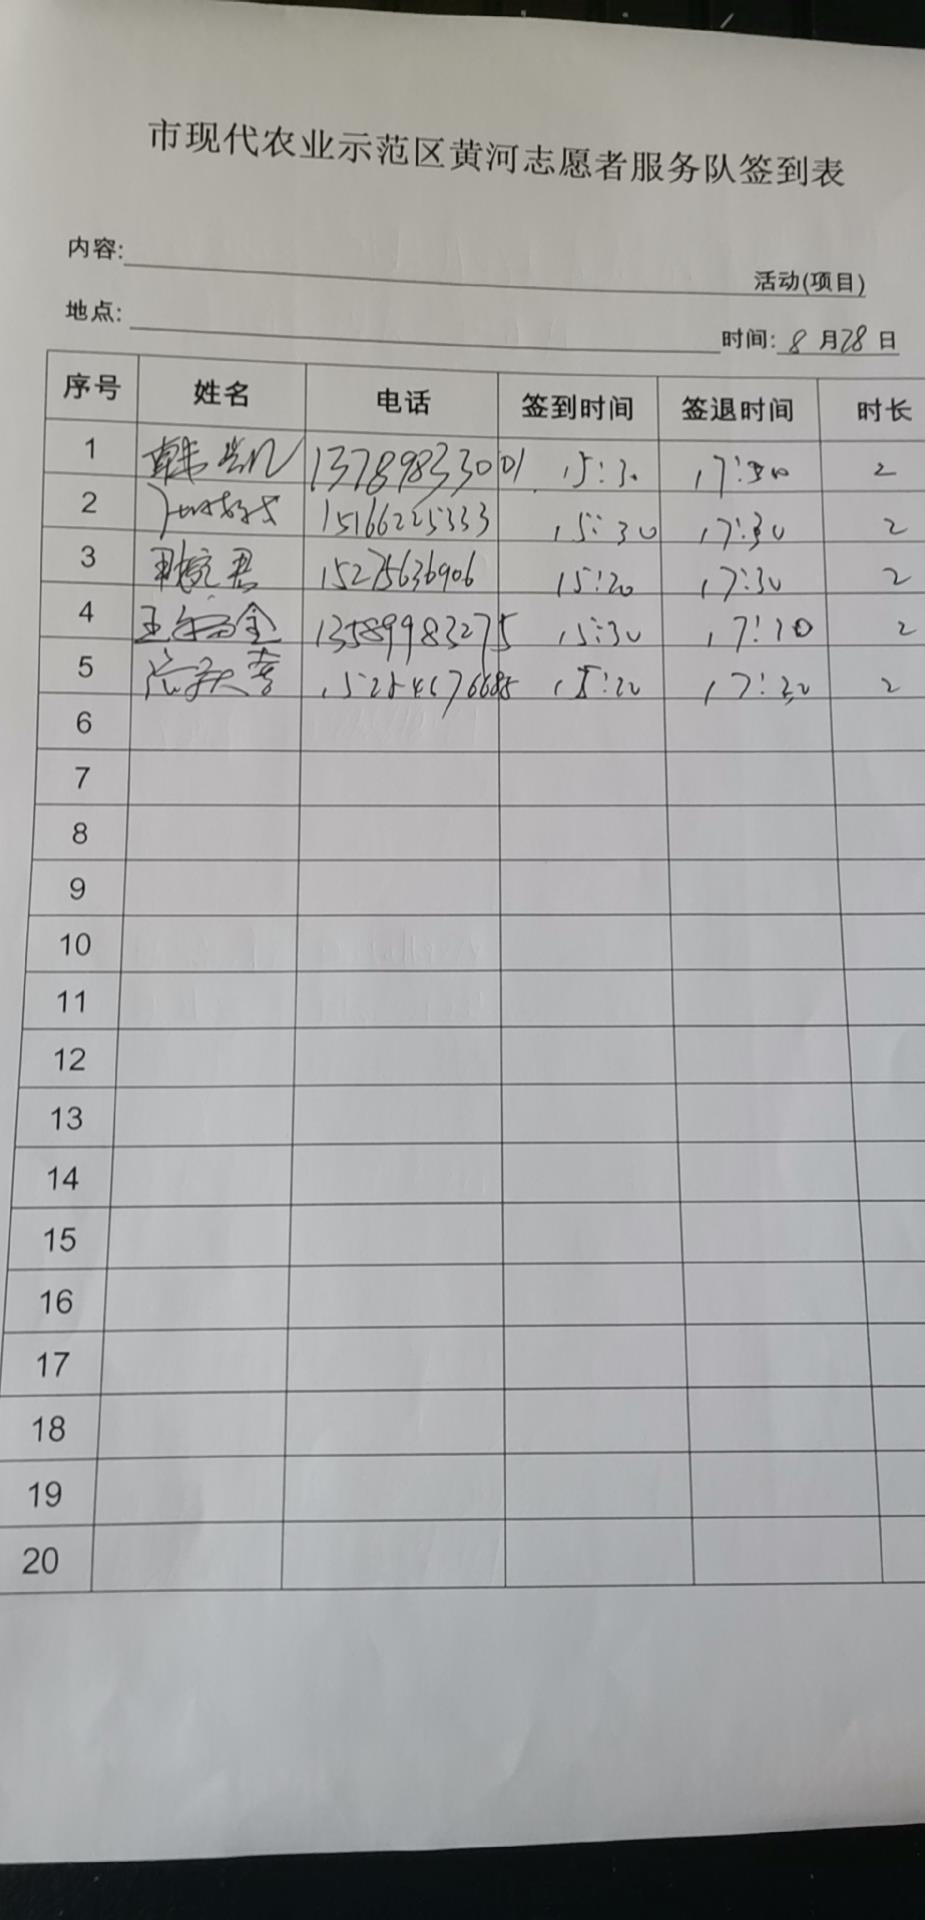 市现代农业示范区黄河志愿者服务队签到表
内容: 活动(项目)
地点: 时间: 8 月 28 日
序号 姓名 电话 签到时间 签退时间 时长
1 韩 13789833001 15:30 17:30 2
2 15166225333 15:30 17:30 2
3 君 15275636906 15:20 17:30 2
4 王 金 13589983275 15:30 17:10 2
5 15:20 17:30 2
6
7
8
9
10
11
12
13
14
15
16
17
18
19
20